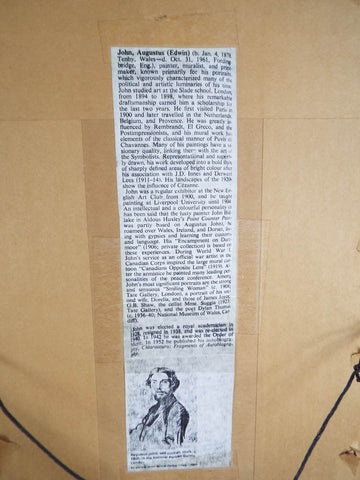 John, Augustus (Edwin) (b. Jan. 4, 1878,
Tenby, Wales—d. Oct. 31, 1961, Fording-
bridge, Eng.), painter, muralist, and print-
maker, known primarily for his portraits,
which vigorously characterized many of the
political and artistic luminaries of his time.
John studied art at the Slade school, London,
from 1894 to 1898, where his remarkable
draftsmanship earned him a scholarship for
the last two years. He first visited Paris in
1900 and later travelled in the Netherlands,
Belgium, and Provence. He was greatly in-
fluenced by Rembrandt, El Greco, and the
Postimpressionists, and his mural work has
elements of the classical manner of Puvis de
Chavannes. Many of his paintings have a vi-
sionary quality, linking them with the art of
the Symbolists. Representational and superb-
ly drawn, his work developed into a bold style
of sharply defined areas of bright colour during
his association with J.D. Innes and Derwent
Lees (1911–14). His landscapes of the 1920s
show the influence of Cézanne.
John was a regular exhibitor at the New En-
glish Art Club from 1900, and he taught
painting at Liverpool University until 1904.
An intellectual and a colourful personality (it
has been said that the lusty painter John Bid-
lake in Aldous Huxley's Point Counter Point
was partly based on Augustus John), he
roamed over Wales, Ireland, and Dorset, liv-
ing with gypsies and learning their customs
and language. His "Encampment on Dart-
moor" (1906; private collection) is based on
these experiences. During World War I
John's service as an official war artist in the
Canadian Corps inspired the large mural car-
toon "Canadians Opposite Lens" (1919). Af-
ter the armistice he painted many leading per-
sonalities of the peace conference. Among
John's most significant portraits are the strong
and sensuous "Smiling Woman" (c. 1908;
Tate Gallery, London), a portrait of his sec-
ond wife, Dorelia, and those of James Joyce,
G.B. Shaw, the cellist Mme. Suggia (1923;
Tate Gallery), and the poet Dylan Thomas
(c. 1936–40; National Museum of Wales, Car-
diff).
John was elected a royal academician in
resigned in 1938, and was re-elected in
1940. In 1942 he was awarded the Order of
Merit. In 1952 he published his autobiogra-
phy, Chiaroscuro: Fragments of Autobiogra-
phy.